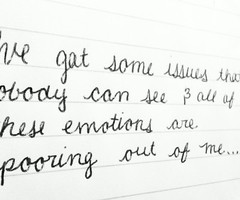 've got some issues tha
obody can see & all of
hese emotions are.
pooring out of me...